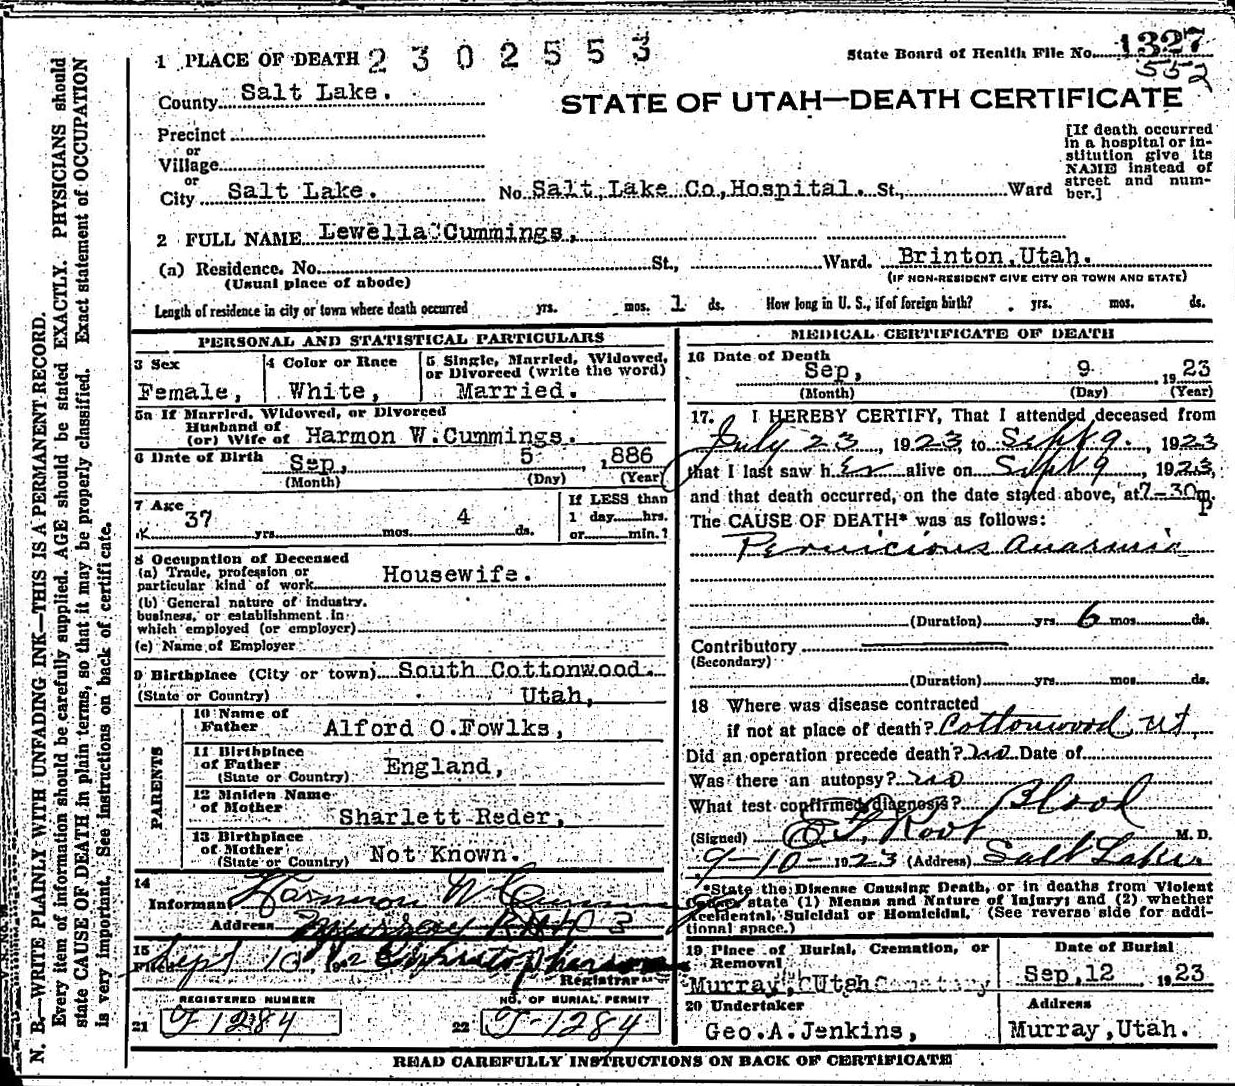 1 PLACE OF DEATH 2302553
State Board of Health File No. 1327
552
County Salt Lake.
STATE OF UTAH—DEATH CERTIFICATE
Precinct
or
Village
or
City Salt Lake. No. Salt Lake Co, Hospital. St., Ward
[If death occurred in a hospital or in-
stitution give its
NAME instead of
street and num-
ber.]
2 FULL NAME Lewella Cummings,
(a) Residence. No. St., Ward. Brinton, Utah.
(Usual place of abode) (IF NON-RESIDENT GIVE CITY OR TOWN AND STATE)
Length of residence in city or town where death occurred yrs. mos. 1 ds. How long in U. S., if of foreign birth? yrs. mos. ds.
PERSONAL AND STATISTICAL PARTICULARS
3 Sex 4 Color or Race 5 Single, Married, Widowed,
or Divorced (write the word)
Female, White, Married.
5a If Married, Widowed, or Divorced
Husband of
(or) Wife of Harmon W. Cummings.
6 Date of Birth Sep, 5 , 1886
(Month) (Day) (Year)
7 Age 37 yrs. mos. 4 ds.
If LESS than
1 day......hrs.
or......min.?
8 Occupation of Deceased
(a) Trade, profession or
particular kind of work Housewife.
(b) General nature of industry,
business, or establishment in
which employed (or employer)
(c) Name of Employer
9 Birthplace (City or town) South Cottonwood.
(State or Country) Utah,
PARENTS
10 Name of
Father Alford O. Fowlks,
11 Birthplace
of Father
(State or Country) England,
12 Maiden Name
of Mother Sharlett Reder,
13 Birthplace
of Mother
(State or Country) Not Known.
14
Informant Harmon W Cummings
Address Murray R 3
15
Filed Sept 10, 192
Registrar
REGISTERED NUMBER NO. OF BURIAL PERMIT
21 J 1284 22 J-1284
MEDICAL CERTIFICATE OF DEATH
16 Date of Death
Sep, 9 1923
(Month) (Day) (Year)
17. I HEREBY CERTIFY, That I attended deceased from
July 23, 1923, to Sept 9, 1923
that I last saw her alive on Sept 9, 1923,
and that death occurred, on the date stated above, at 7-30 p.
The CAUSE OF DEATH* was as follows:
Pernicious Anaemia
(Duration) yrs. 6 mos. ds.
Contributory
(Secondary)
(Duration) yrs. mos. ds.
18 Where was disease contracted
if not at place of death? Cottonwood, Ut.
Did an operation precede death? no Date of
Was there an autopsy? no
What test confirmed diagnosis? Blood
(Signed) Root M. D.
9-10-1923 (Address) Salt Lake.
*State the Disease Causing Death, or in deaths from Violent
Causes, state (1) Means and Nature of Injury; and (2) whether
Accidental, Suicidal or Homicidal. (See reverse side for addi-
tional space.)
19 Place of Burial, Cremation, or
Removal
Murray, Utah Cemetery
Date of Burial
Sep, 12 1923
20 Undertaker
Geo. A. Jenkins,
Address
Murray, Utah.
READ CAREFULLY INSTRUCTIONS ON BACK OF CERTIFICATE
N. B.—WRITE PLAINLY WITH UNFADING INK—THIS IS A PERMANENT RECORD.
Every item of information should be carefully supplied. AGE should be stated EXACTLY. PHYSICIANS should
state CAUSE OF DEATH in plain terms, so that it may be properly classified. Exact statement of OCCUPATION
is very important. See instructions on back of certificate.